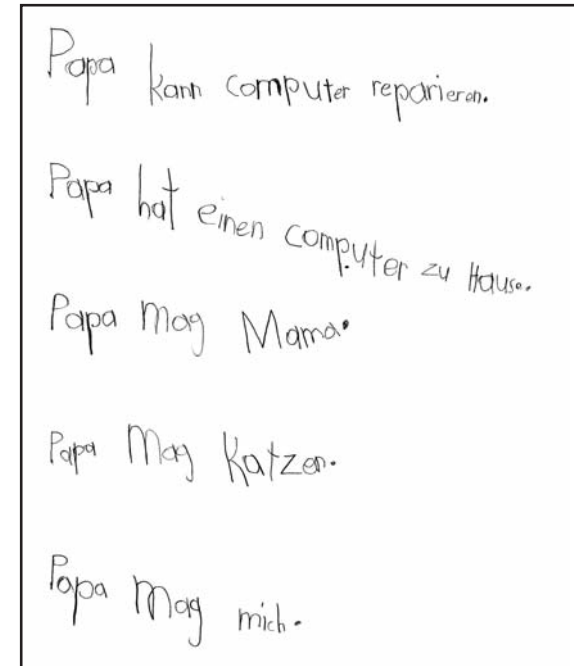 Papa kann computer reparieren.
Papa hat einen computer zu Hause.
Papa mag Mama.
Papa mag Katzen.
Papa mag mich.